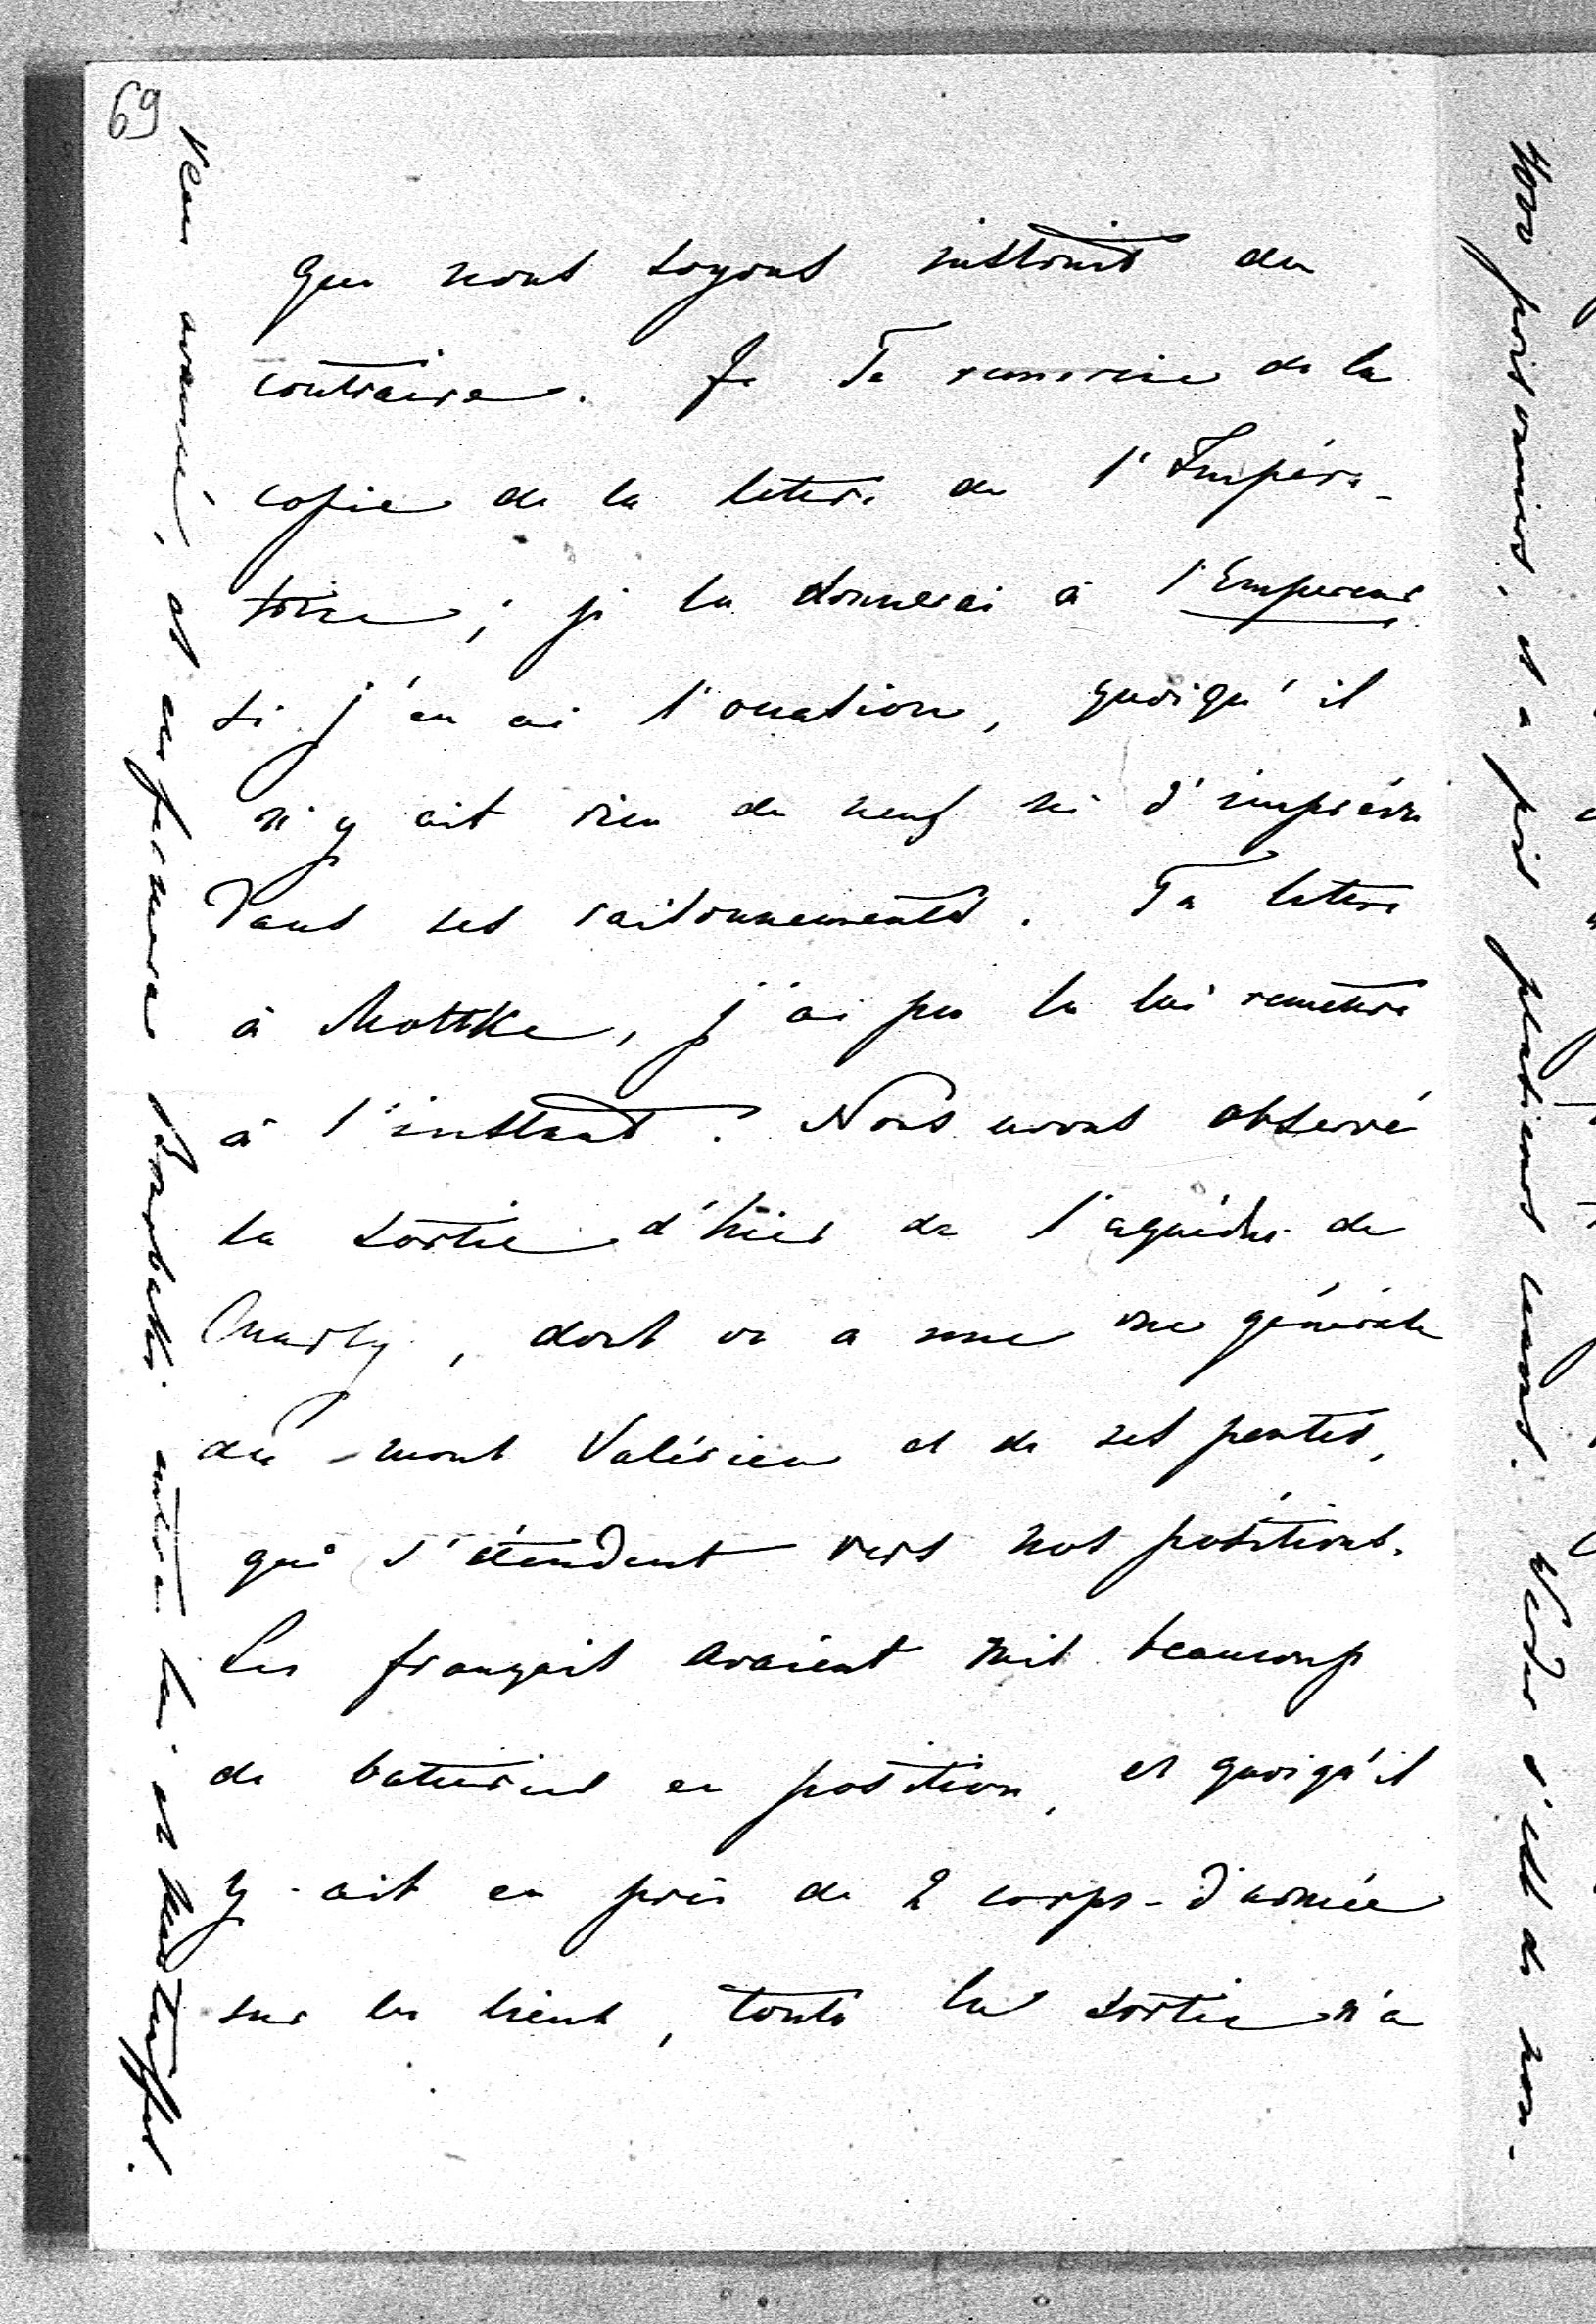 69
que nous soyons instruit du
contraire. Je Te remercie de la
copie de la lettre de l'Impéra-
trice; je la donnerai à l'Empereur
si j'en ai l'occasion, quoiqu'il
n'y ait rien de neuf ni d'imprévu
dans ses raisonnements. Ta lettre
à Moltke, j'ai pu la lui remettre
à l'instant. Nous avons observé
la sortie d'hier de l'aquéduc de
Marly, dont on a une vue générale
du mont Valérien et de ses pentes,
qui s'étendent vers nos positions.
Les français avaient mis beaucoup
de batteries en position, et quoiqu'il
y ait eu près de 2 corps-d'armée
sur les lieux, toute la sortie n'a
400 prisonniers, et a pris plusieurs canons. Werder s'est de nou-
veau avancé, et enfermera Bourbaki entre lui et Manteuffel.